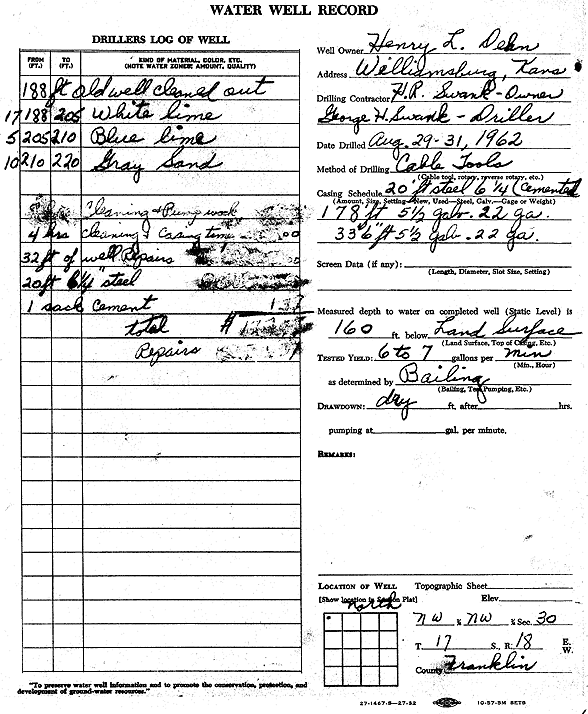 WATER WELL RECORD
DRILLERS LOG OF WELL
FROM (FT.) TO (FT.) KIND OF MATERIAL, COLOR, ETC. (NOTE WATER ZONES: AMOUNT, QUALITY)
188 ft old well cleaned out
17 188 205 White lime
5 205 210 Blue lime
10 210 220 Gray Sand
Cleaning & Pump work
4 hrs cleaning & Casing time 00
32 ft of well Repairs
20 ft 6 1/4" steel
1 sack cement
total $
Repairs
"To preserve water well information and to promote the conservation, protection, and development of ground-water resources."
Well Owner Henry L. Dehn
Address Williamsburg, Kans
Drilling Contractor H.R. Swank - Owner
George H. Swank - Driller
Date Drilled Aug. 29-31, 1962
Method of Drilling Cable Tools
(Cable tool, rotary, reverse rotary, etc.)
Casing Schedule 20 ft steel 6 1/4 (Cemented
(Amount, Size, Setting—New, Used—Steel, Galv.—Gage or Weight)
178 ft 5 1/2 galv. 22 ga.
33'6" ft 5 1/2 galv. 22 ga.
Screen Data (if any):
(Length, Diameter, Slot Size, Setting)
Measured depth to water on completed well (Static Level) is
160 ft. below Land Surface
(Land Surface, Top of Casing, Etc.)
TESTED YIELD: 6 to 7 gallons per min
(Min., Hour)
as determined by Bailing
(Bailing, Test Pumping, Etc.)
DRAWDOWN: dry ft. after hrs.
pumping at gal. per minute.
REMARKS:
LOCATION OF WELL Topographic Sheet
[Show location in Section Plat] Elev.
North
NW ¼ NW ¼ Sec. 30
T. 17 S., R. 18 E. W.
County Franklin
27-1467-S—27-32 10-57-5M SETS